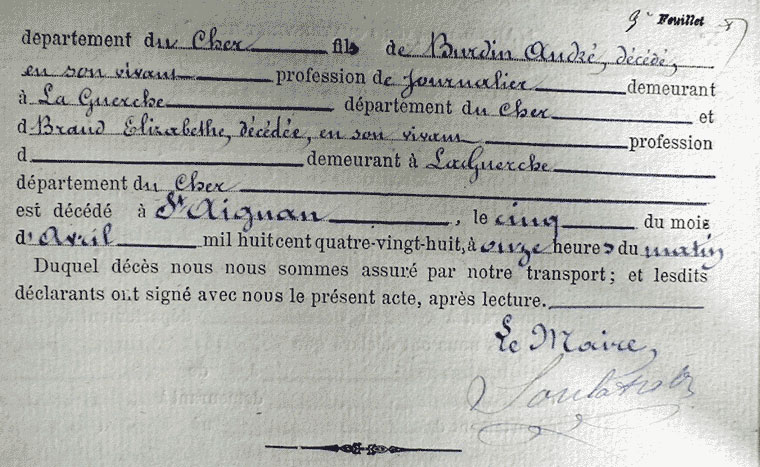 9e Feuillet
département du Cher fils de Burdin André, décédé,
en son vivant profession de Journalier demeurant
à La Guerche département du Cher et
d Braud Elisabethe, décédée, en son vivant profession
d demeurant à LaGuerche
département du Cher
est décédé à St Aignan , le cinq du mois
d'Avril mil huit cent quatre-vingt-huit, à onze heures du matin
Duquel décès nous nous sommes assuré par notre transport; et lesdits
déclarants ont signé avec nous le présent acte, après lecture.
Le Maire,